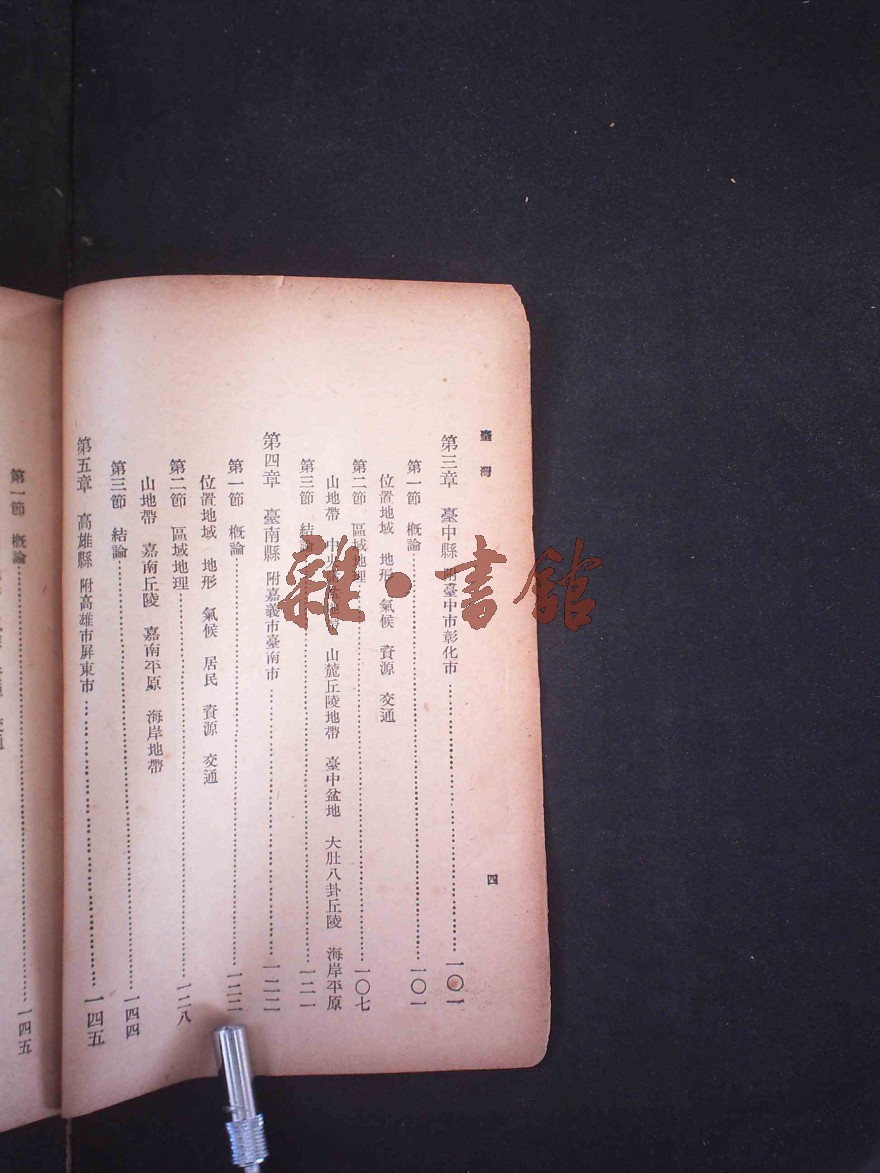 臺灣
四
第三章 臺中縣 附臺中市彰化市 一〇一
第一節 概論 一〇一
位置地域 地形 氣候 資源 交通
第二節 區域地理 一〇七
山地帶 中央 山麓丘陵地帶 臺中盆地 大肚八卦丘陵 海岸平原
第三節 結論 一二一
第四章 臺南縣 附嘉義市臺南市 一二二
第一節 概論 一二二
位置地域 地形 氣候 居民 資源 交通
第二節 區域地理 一二八
山地帶 嘉南丘陵 嘉南平原 海岸地帶
第三節 結論 一四四
第五章 高雄縣 附高雄市屏東市 一四五
第一節 概論 一四五
雜·書館